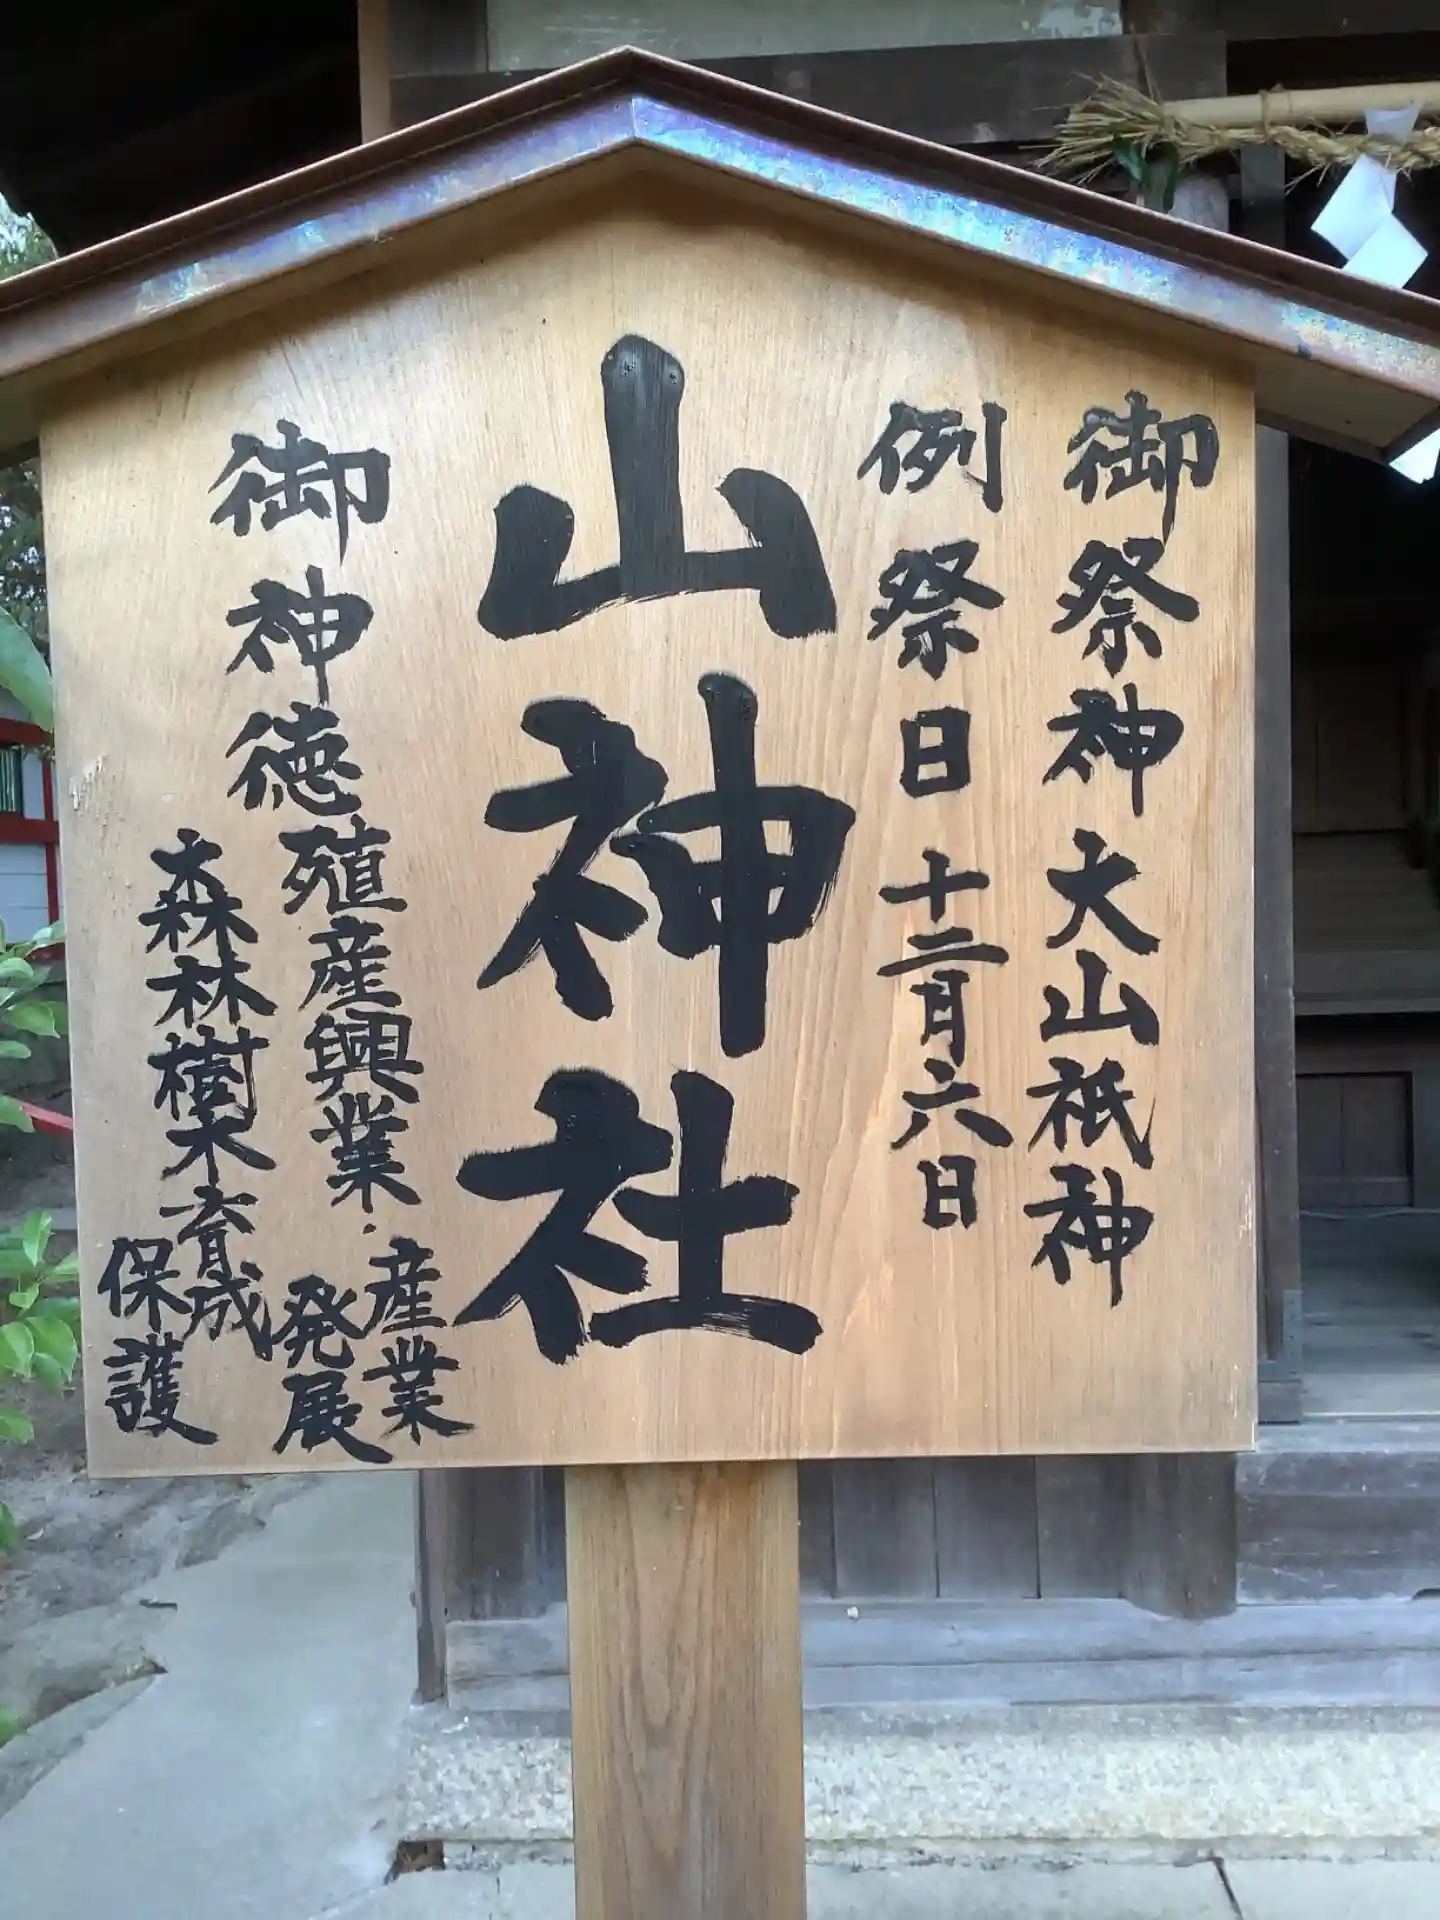 御祭神 大山祇神
例祭日 十二月六日
山神社
御神徳 殖産興業・産業発展
森林樹木育成保護